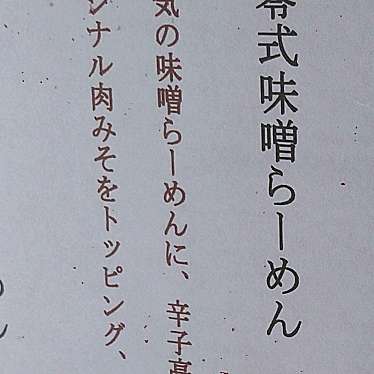 零式味噌らーめん
気の味噌らーめんに、辛子高
ジナル肉みそをトッピング、